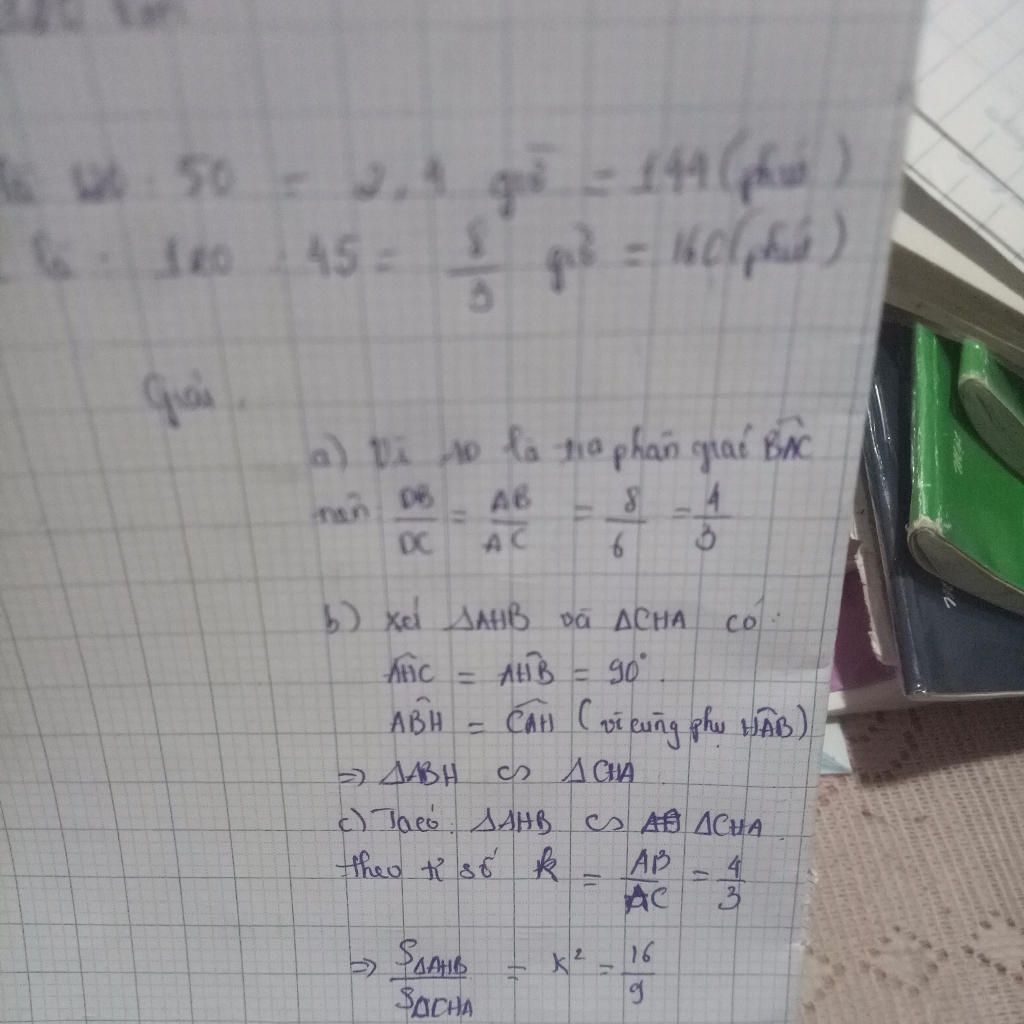 50 = 2,4 giờ = 144 (phút)
là : 120 : 45 = 8/3 giờ = 160 (phút)
Giải.
a) Vì AD là tia phân giác BAC
nên DB/DC = AB/AC = 8/6 = 4/3
b) Xét ΔAHB và ΔCHA có:
AHC = AHB = 90°.
ABH = CAH (vì cùng phụ HAB)
=> ΔABH ∽ ΔCHA
c) Ta có: ΔAHB ∽ ΔCHA
theo tỉ số k = AB/AC = 4/3
=> SΔAHB/SΔCHA = k² = 16/9